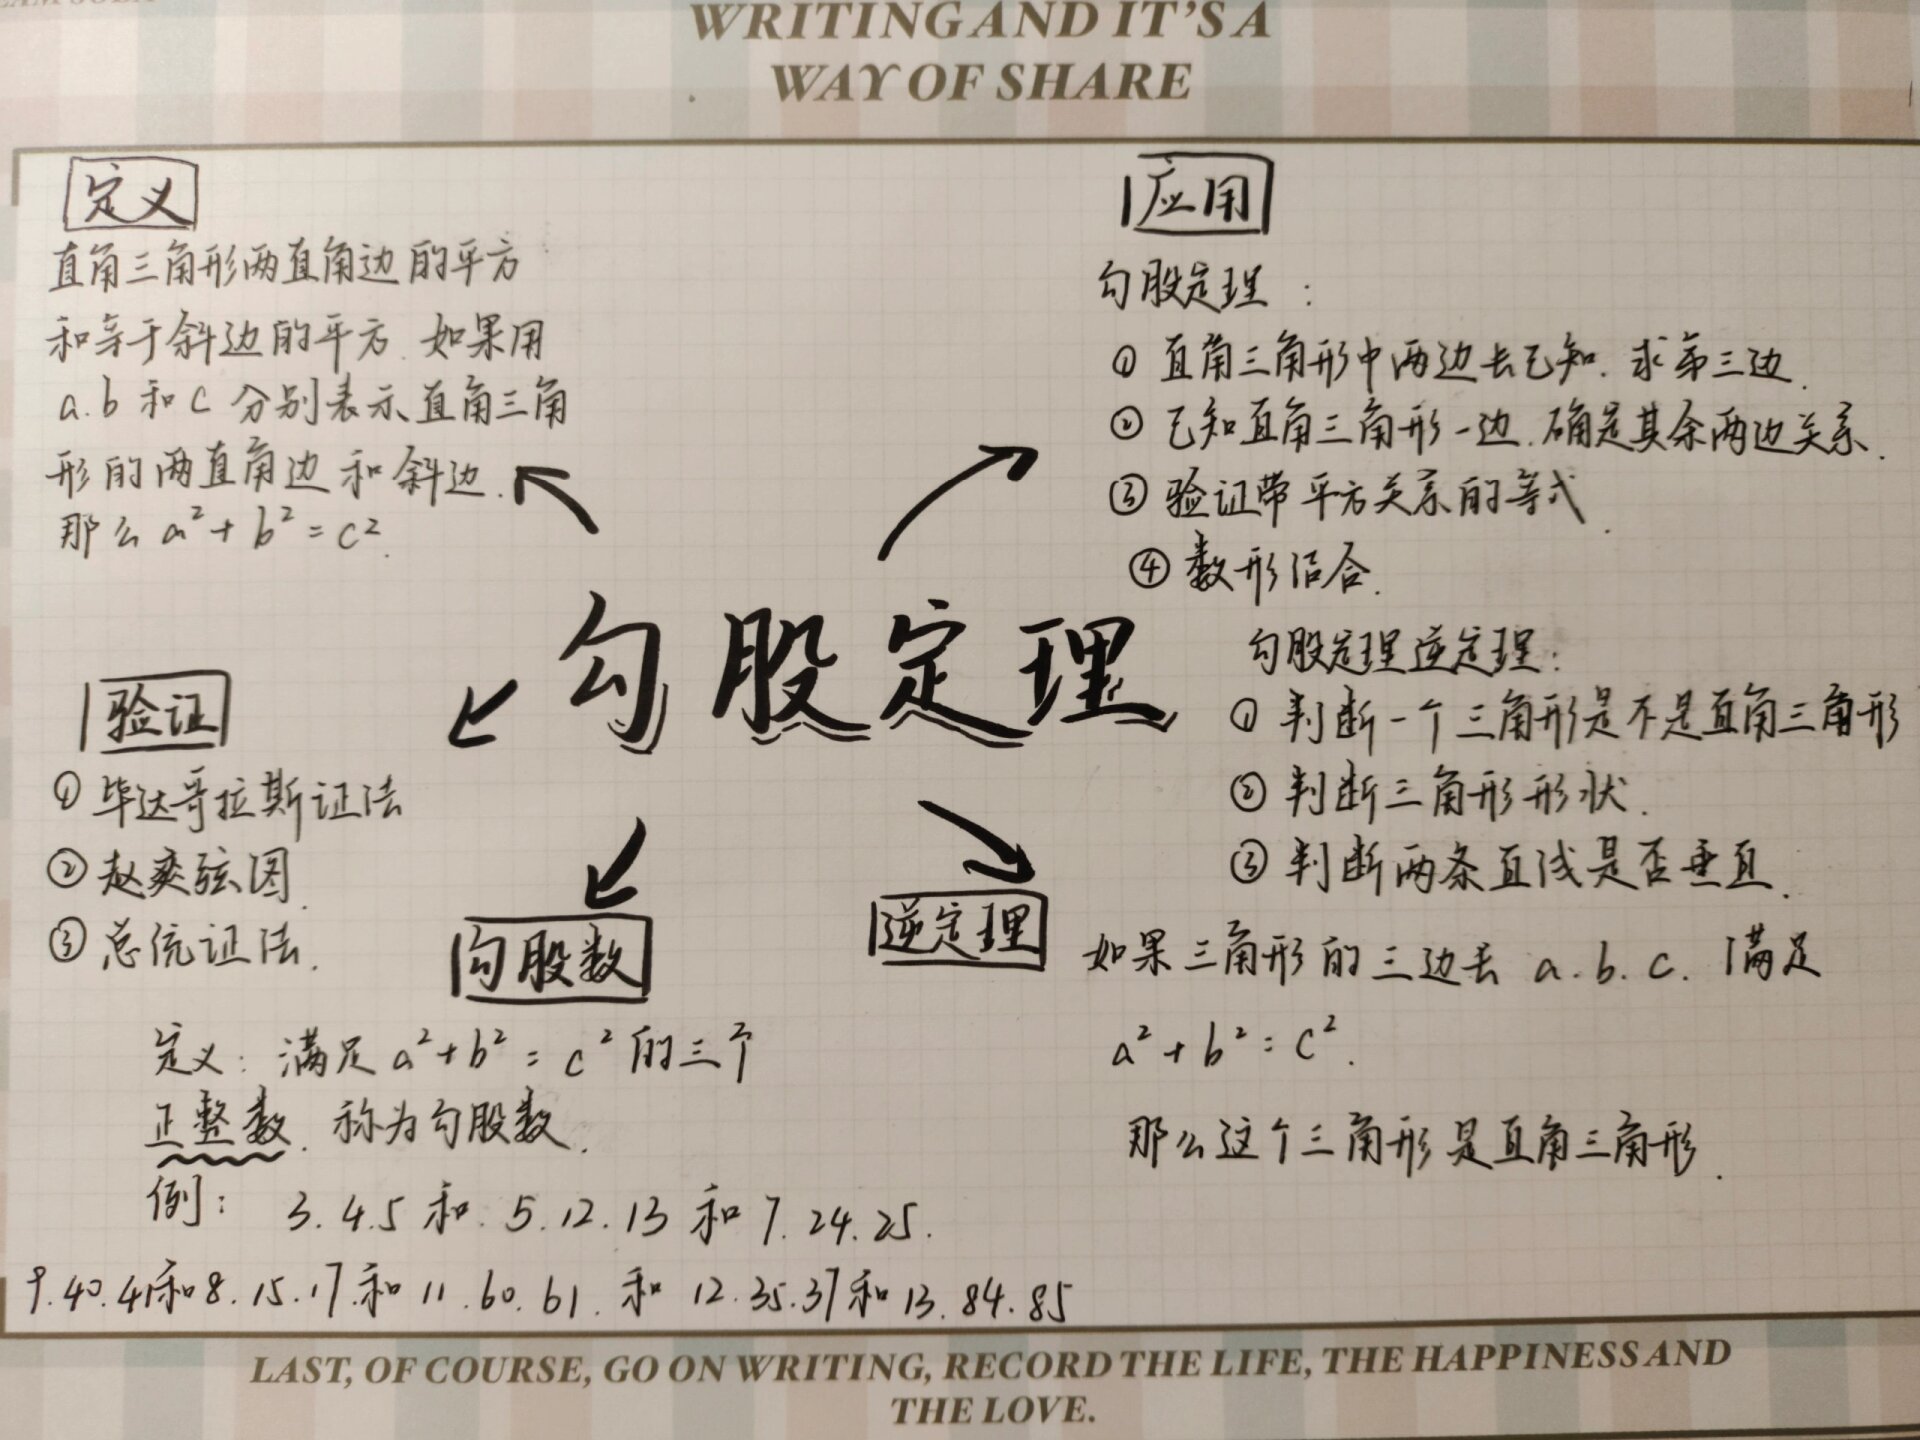 WRITING AND IT'S A
WAY OF SHARE
定义
直角三角形两直角边的平方
和等于斜边的平方.如果用
a.b 和 c 分别表示直角三角
形的两直角边和斜边.
那么 a²+b²=c².
应用
勾股定理:
① 直角三角形中两边长已知.求第三边.
② 已知直角三角形一边.确定其余两边关系.
③ 验证带平方关系的等式.
④ 数形结合.
勾股定理逆定理:
① 判断一个三角形是不是直角三角形
② 判断三角形形状.
③ 判断两条直线是否垂直.
勾股定理
验证
① 毕达哥拉斯证法
② 赵爽弦图.
③ 总统证法.
勾股数
定义: 满足 a²+b²=c² 的三个
正整数.称为勾股数.
例: 3.4.5 和 5.12.13 和 7.24.25.
9.40.41和8.15.17.和 11.60.61. 和 12.35.37和13.84.85
逆定理
如果三角形的三边长 a.b.c. 满足
a²+b²=c².
那么这个三角形是直角三角形.
LAST, OF COURSE, GO ON WRITING, RECORD THE LIFE, THE HAPPINESS AND
THE LOVE.